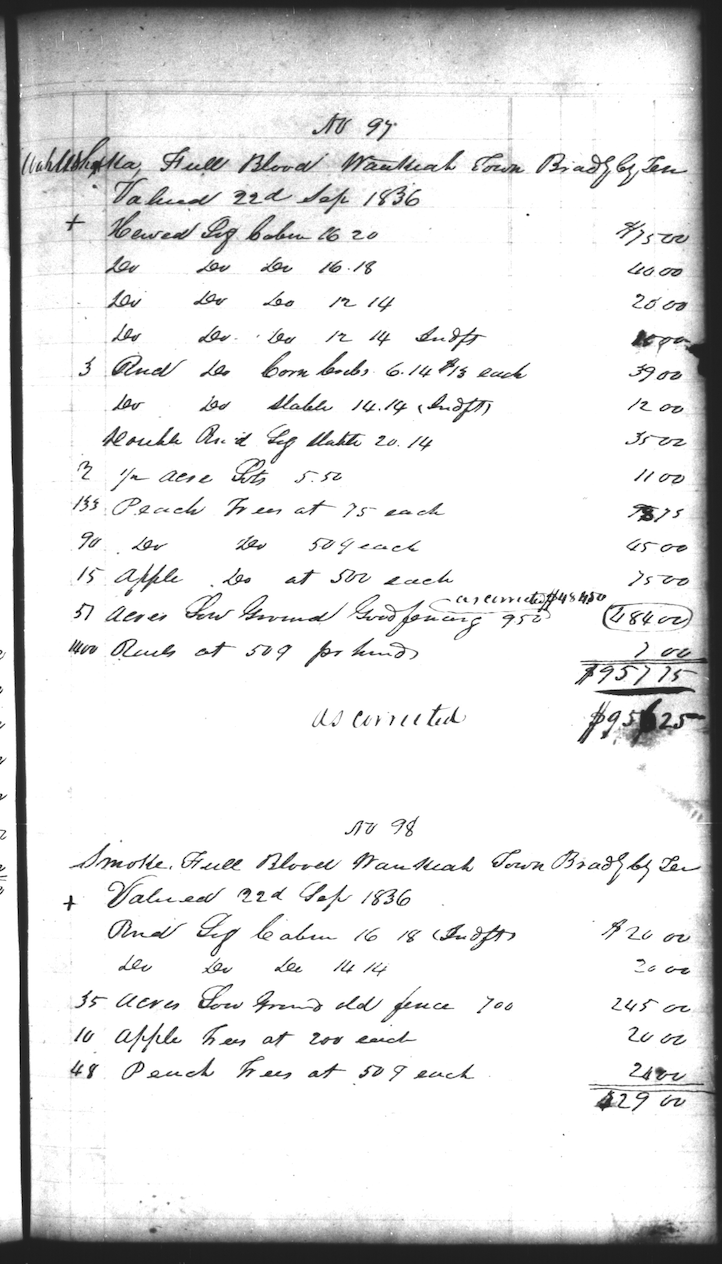 No 97
Full Blood Wankeah Town Brady by Ten
Valued 22d Sep 1836
+ Hewed Log Cabin 16 20 $75 00
Do Do Do 16.18 40 00
Do Do Do 12 14 20 00
Do Do. Do 12 14 Indft
3 Rnd Do Corn Cribs 6.14 $13 each 39 00
Do Do Stable 14.14 (Indft) 12 00
Double Rn'd Log Stable 20.14 35 00
2 1/2 acre Lots 5.50 11 00
133 Peach Trees at 75 each 75
90 Do Do 50 ₵ each 45 00
15 Apple Do at 500 each 75 00
as corrected $484 50
51 Acres Low Ground Good fencing 950 484 00
1400 Rails at 50 ₵ pr hund 7 00
$957 75
as corrected $95 25
No 98
Smoke. Full Blood Wankeah Town Brady by Ten
+ Valued 22d Sep 1836
Rnd Log Cabin 16 18 (Indft) $20 00
Do Do Do 14 14 20 00
35 Acres Low Ground old fence 700 245 00
10 Apple Trees at 200 each 20 00
48 Peach Trees at 50 ₵ each 24 00
29 00